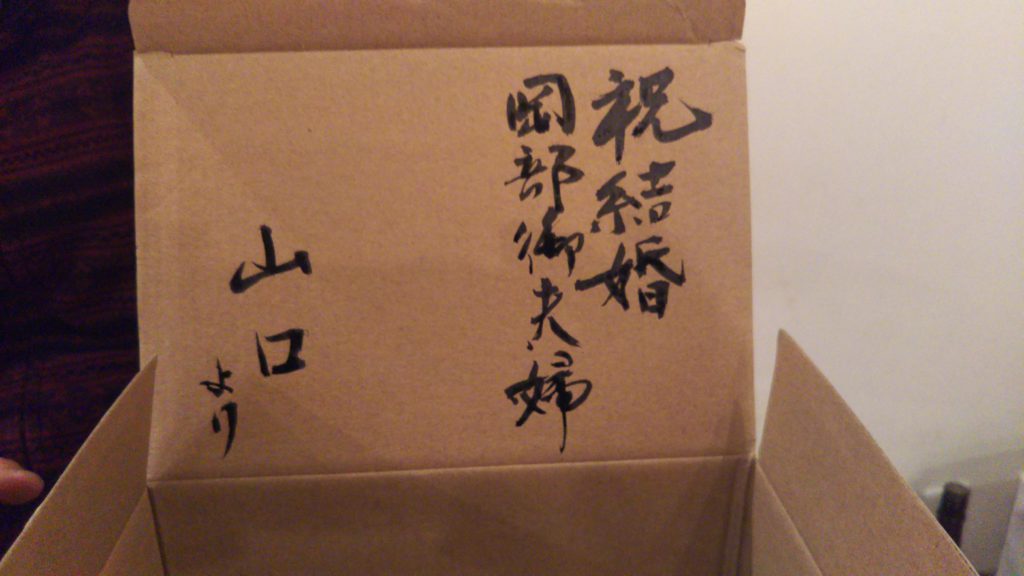 祝結婚
岡部御夫婦
山口
より